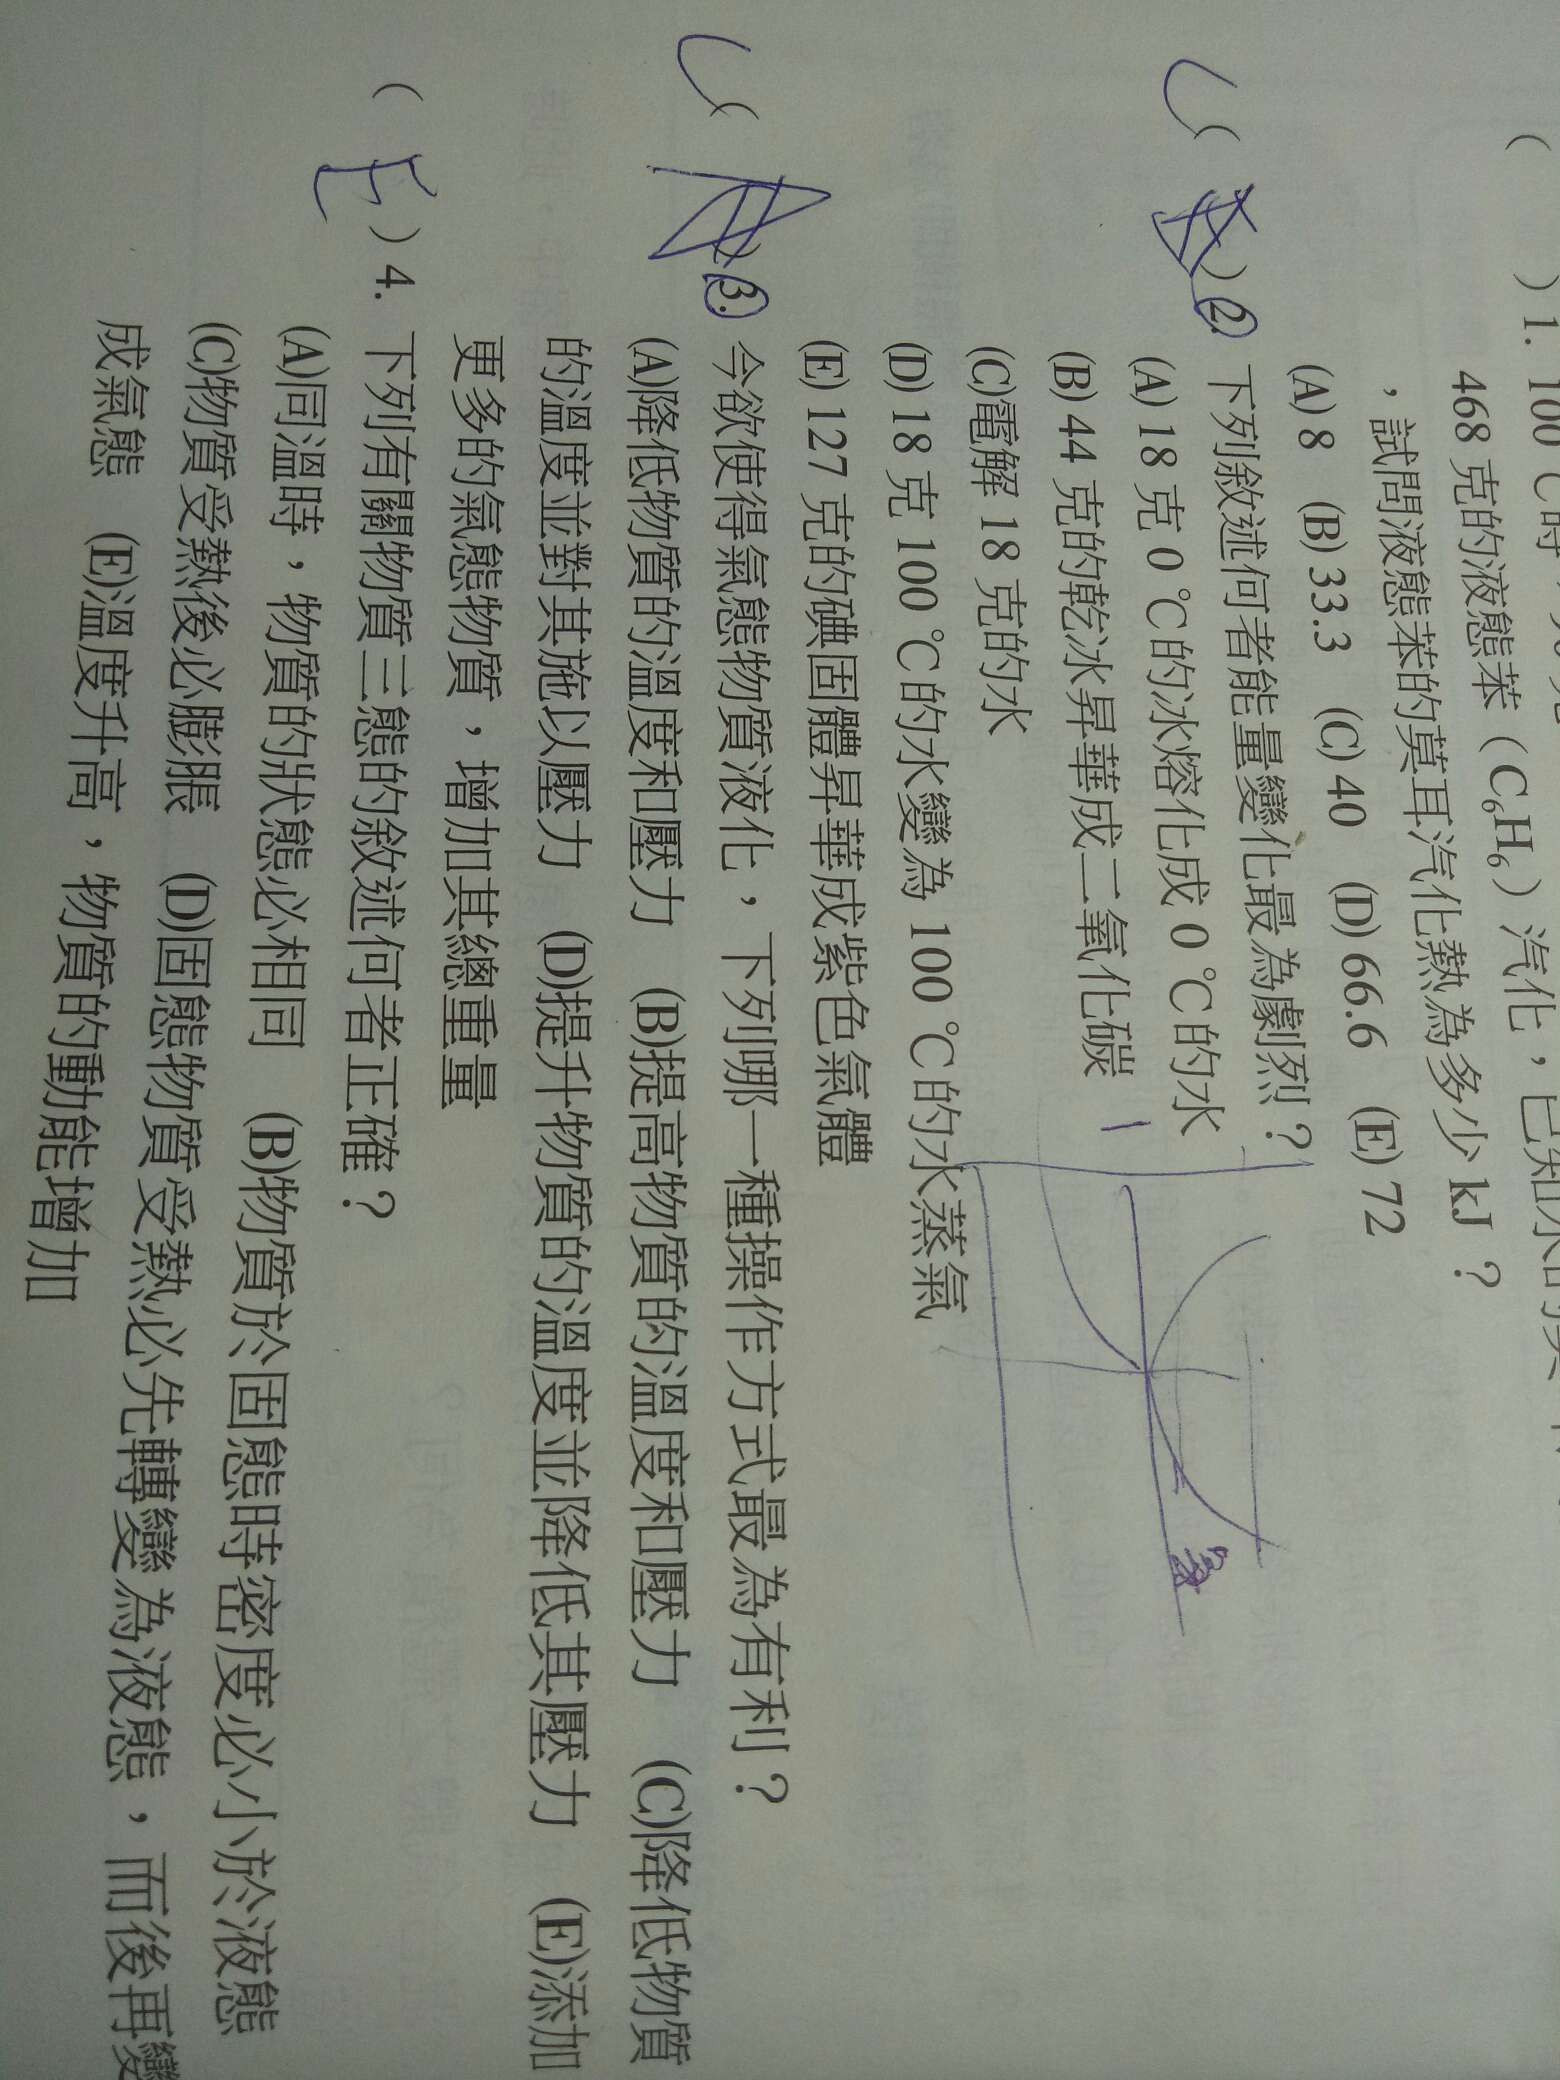 ( ) 1. 100 ℃時，
468 克的液態苯（C₆H₆）汽化，已知水的莫
，試問液態苯的莫耳汽化熱為多少 kJ？
(A) 8 (B) 33.3 (C) 40 (D) 66.6 (E) 72
C ( ) 2. 下列敘述何者能量變化最為劇烈？
(A) 18 克 0 ℃的冰熔化成 0 ℃的水
(B) 44 克的乾冰昇華成二氧化碳
(C)電解 18 克的水
(D) 18 克 100 ℃的水變為 100 ℃的水蒸氣
(E) 127 克的碘固體昇華成紫色氣體
C ( A ) 3. 今欲使得氣態物質液化，下列哪一種操作方式最為有利？
(A)降低物質的溫度和壓力 (B)提高物質的溫度和壓力 (C)降低物質
的溫度並對其施以壓力 (D)提升物質的溫度並降低其壓力 (E)添加
更多的氣態物質，增加其總重量
( E ) 4. 下列有關物質三態的敘述何者正確？
(A)同溫時，物質的狀態必相同 (B)物質於固態時密度必小於液態
(C)物質受熱後必膨脹 (D)固態物質受熱必先轉變為液態，而後再變
成氣態 (E)溫度升高，物質的動能增加